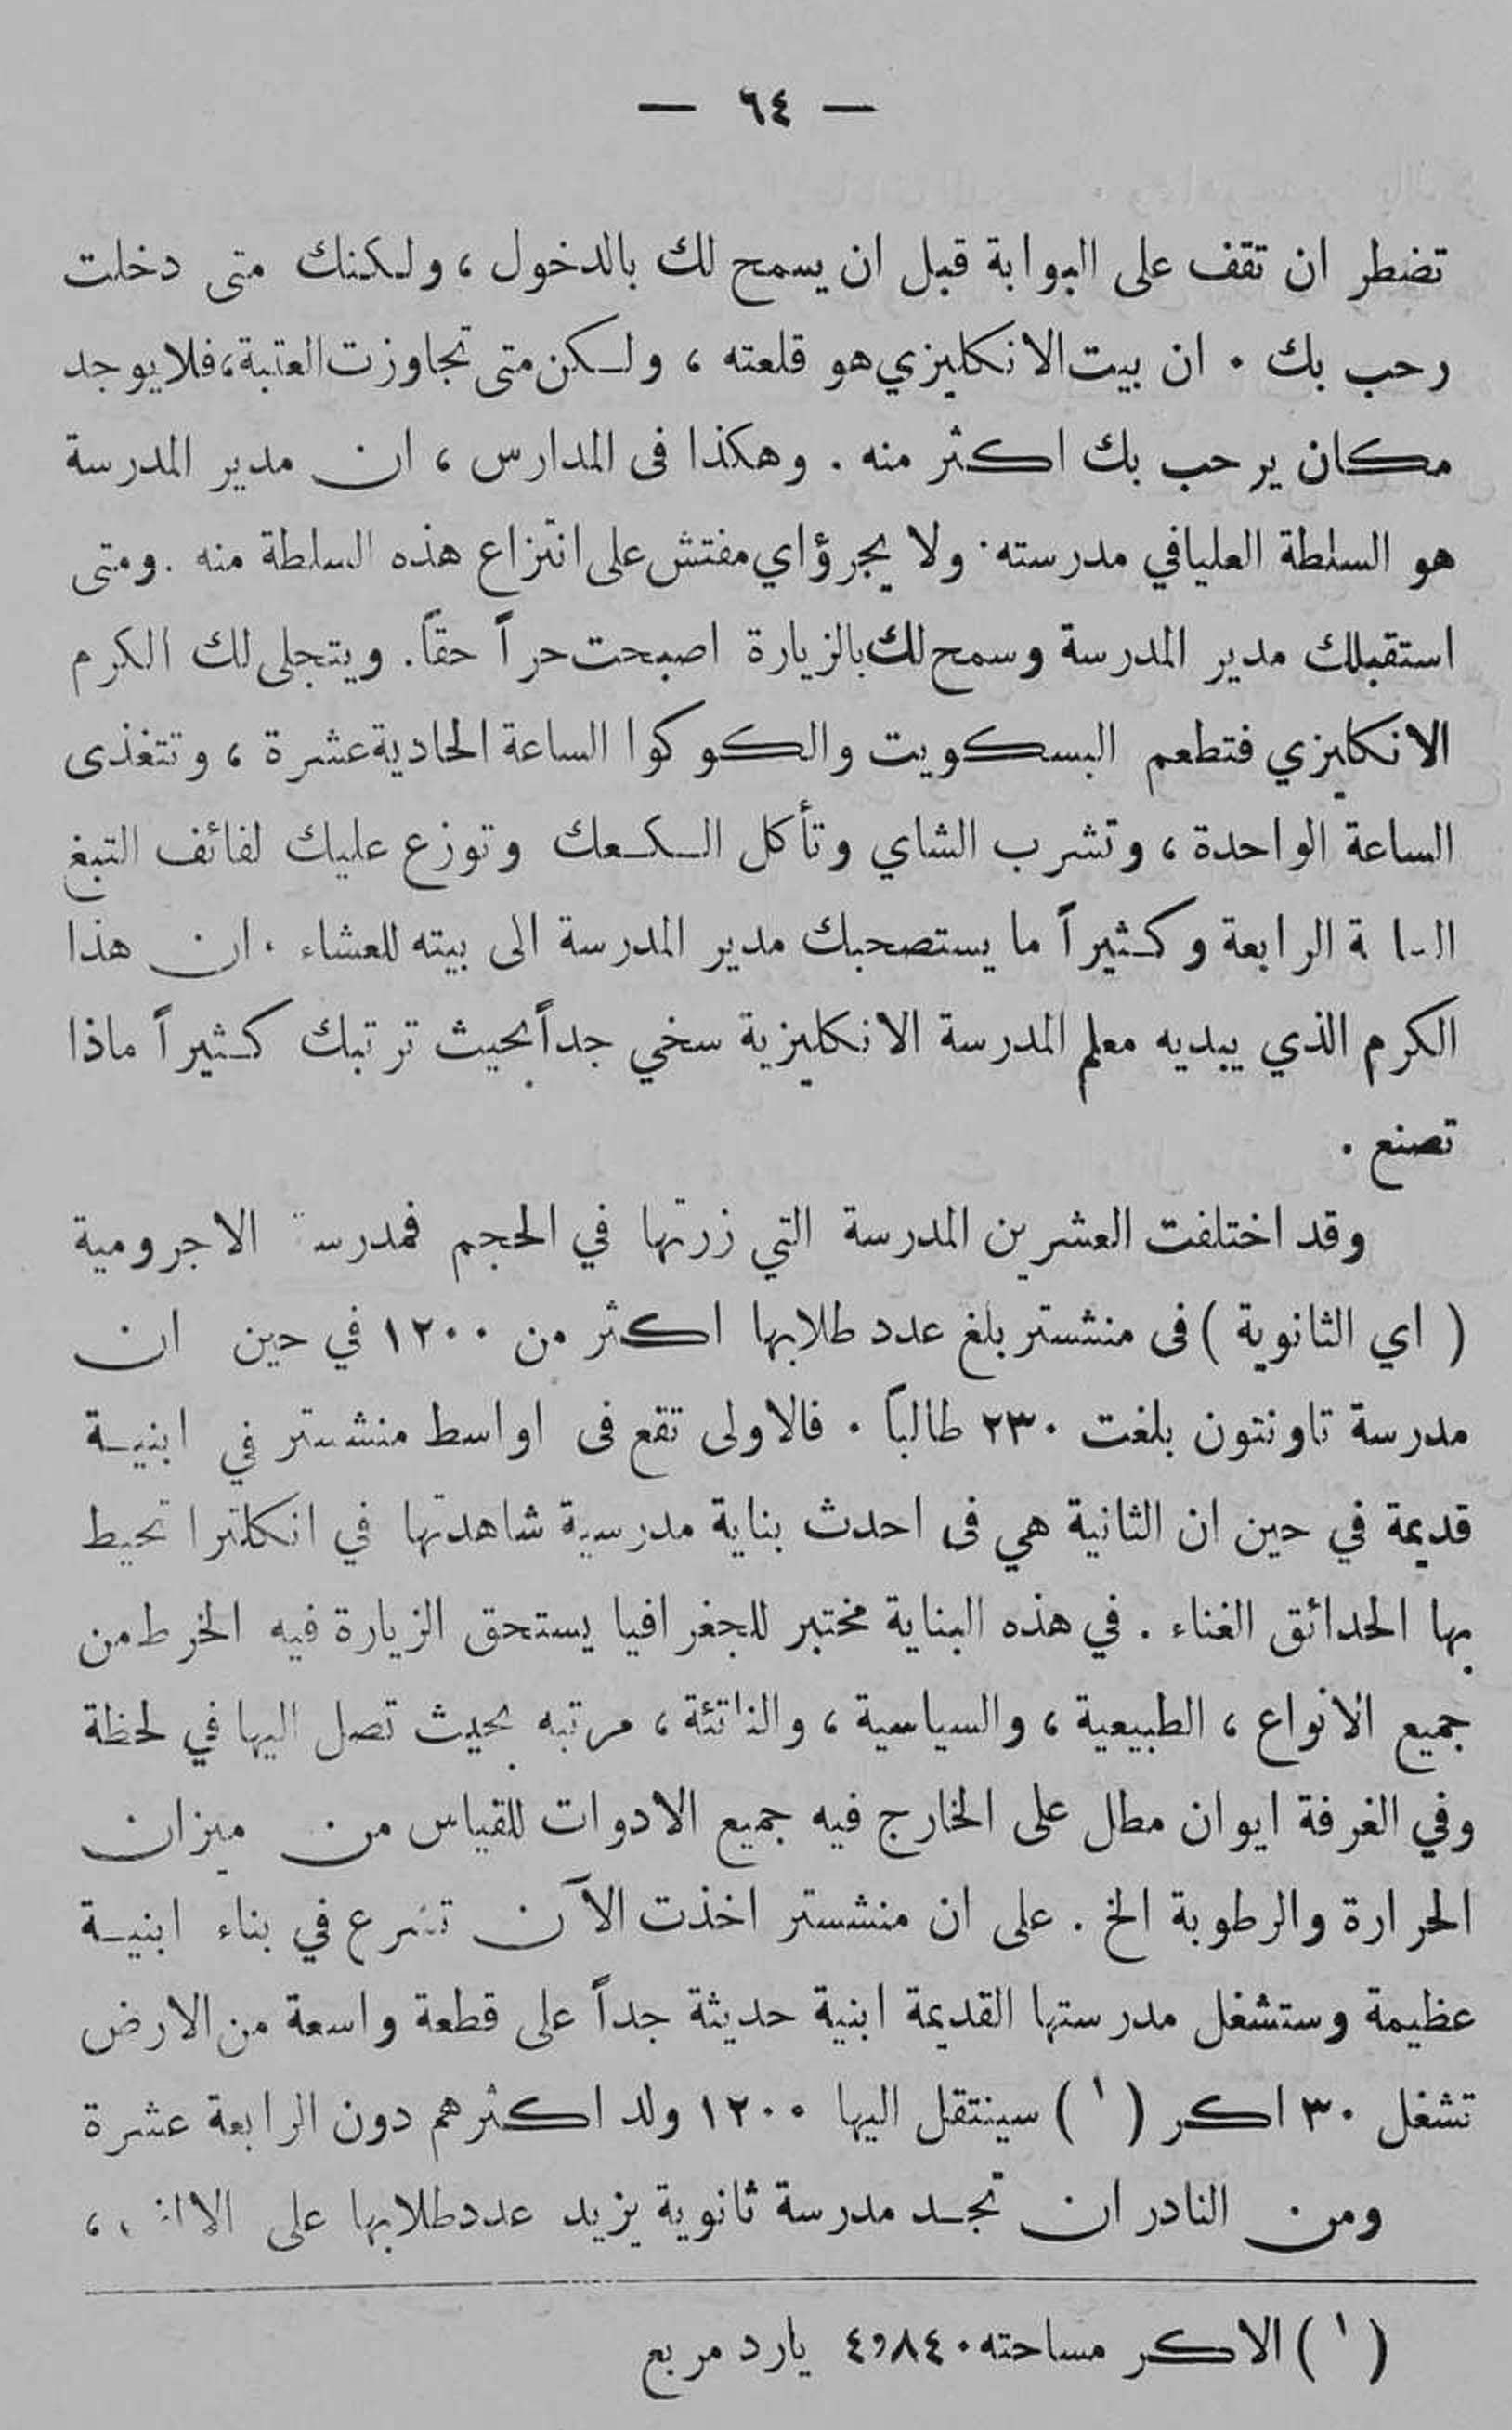 — ٦٤ —
تضطر ان تقف على البوابة قبل ان يسمح لك بالدخول ، ولكنك متى دخلت
رحب بك . ان بيت الانكليزي هو قلعته ، ولكن متى تجاوزت العتبة ، فلا يوجد
مكان يرحب بك اكثر منه . وهكذا في المدارس ، ان مدير المدرسة
هو السلطة العليا في مدرسته . ولا يجرؤ اي مفتش على انتزاع هذه السلطة منه . ومتى
استقبلك مدير المدرسة وسمح لك بالزيارة اصبحت حراً حقاً . ويتجلى لك الكرم
الانكليزي فتطعم البسكويت والكوكوا الساعة الحادية عشرة ، وتتغذى
الساعة الواحدة ، وتشرب الشاي وتأكل الكعك وتوزع عليك لفائف التبغ
الرابعة وكثيراً ما يستصحبك مدير المدرسة الى بيته للعشاء . ان هذا
الكرم الذي يبديه معلم المدرسة الانكليزية سخي جداً بحيث ترتبك كثيراً ماذا
تصنع .
وقد اختلفت العشرين المدرسة التي زرتها في الحجم فمدرسة الاجرومية
( اي الثانوية ) في منشستر بلغ عدد طلابها اكثر من ١٢٠٠ في حين ان
مدرسة تاونتون بلغت ٢٣٠ طالباً . فالاولى تقع في اواسط منشستر في ابنية
قديمة في حين ان الثانية هي في احدث بناية مدرسية شاهدتها في انكلترا تحيط
بها الحدائق الغناء . في هذه البناية مختبر للجغرافيا يستحق الزيارة فيه الخرط من
جميع الانواع ، الطبيعية ، والسياسية ، والناتئة ، مرتبه بحيث تصل اليها في لحظة
وفي الغرفة ايوان مطل على الخارج فيه جميع الادوات للقياس من ميزان
الحرارة والرطوبة الخ . على ان منشستر اخذت الآن تشرع في بناء ابنية
عظيمة وستشغل مدرستها القديمة ابنية حديثة جداً على قطعة واسعة من الارض
تشغل ٣٠ اكر ( ١ ) سينتقل اليها ١٢٠٠ ولد اكثرهم دون الرابعة عشرة
ومن النادر ان تجد مدرسة ثانوية يزيد عدد طلابها على ،
( ١ ) الاكر مساحته ٤,٨٤٠ يارد مربع